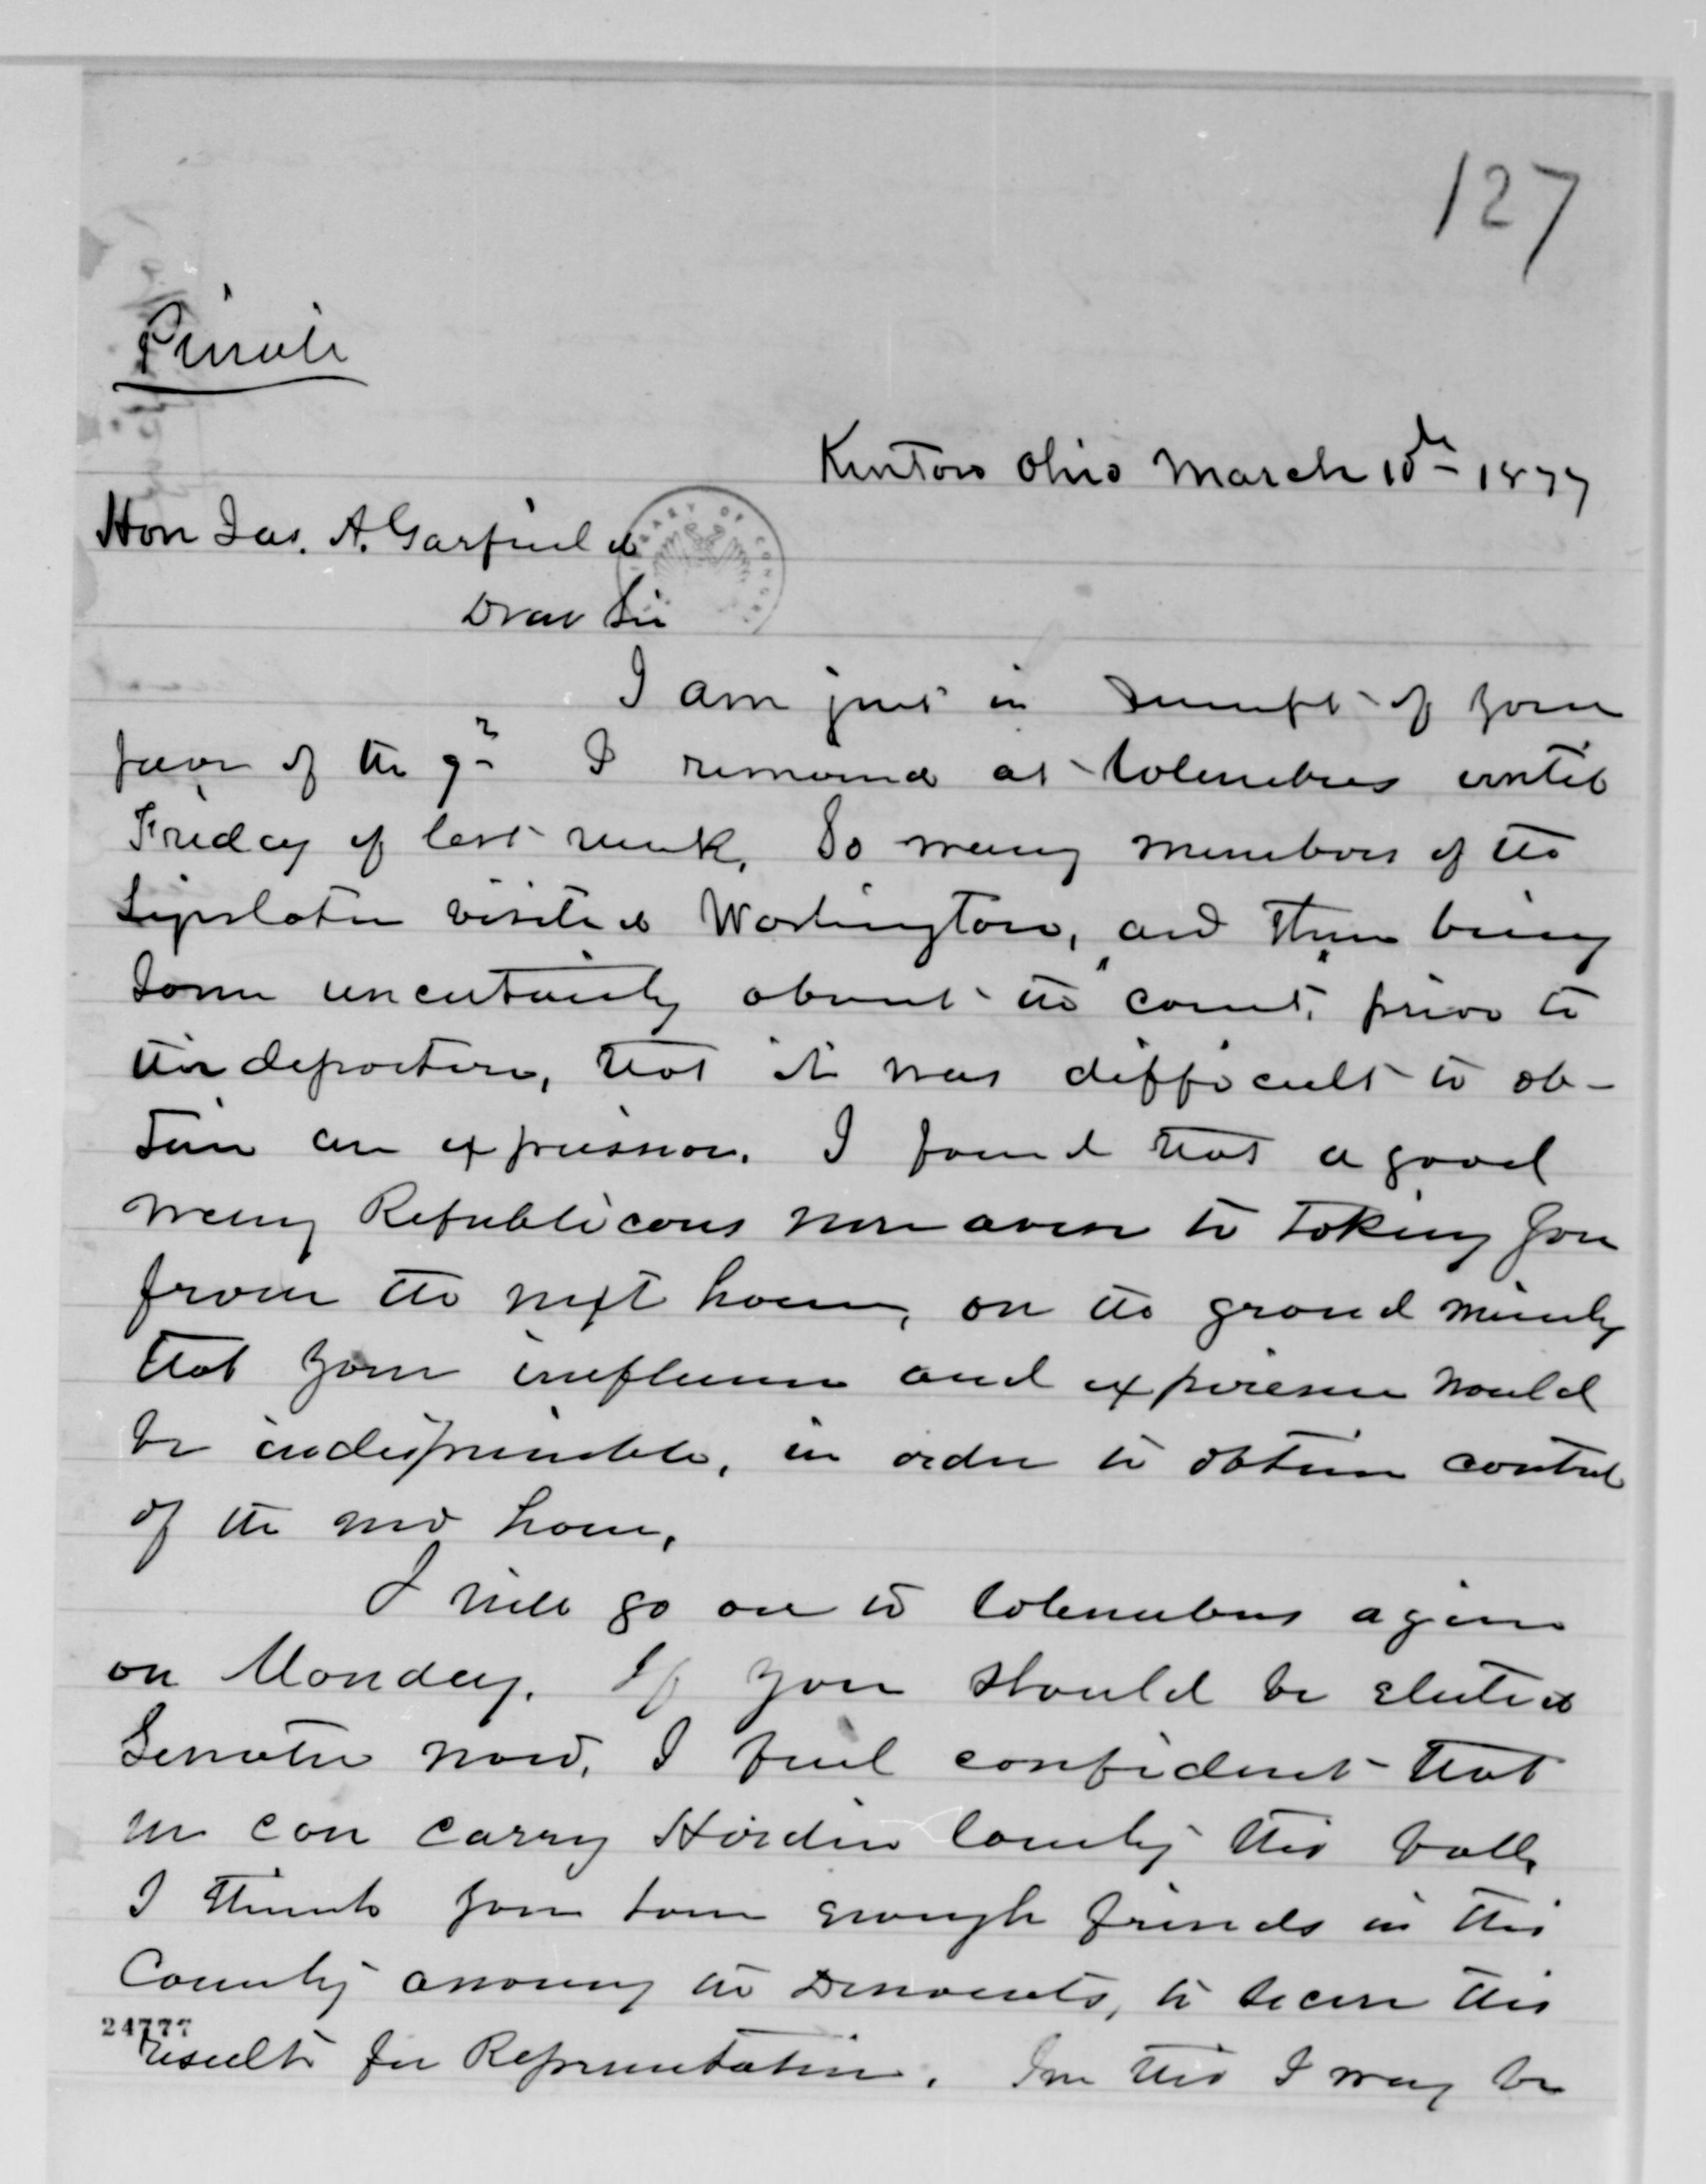 127
Private
Kenton Ohio March 10th 1877
Hon Jas. A. Garfield
LIBRARY OF CONGRESS
Dear Sir
I am just in receipt of your
favor of the 9th I remained at Columbus until
Friday of last week. So many members of the
Legislature visited Washington, and there being
some uncertainty about the "count" prior to
their departure, that it was difficult to ob-
tain an expression. I found that a good
many Republicans were averse to taking you
from the next house, on the ground mainly
that your influence and experience would
be indispensible, in order to obtain control
of the new house.
I will go on to Columbus again
on Monday. If you should be elected
Senator now, I feel confident that
we can carry Hardin County this fall,
I think you have enough friends in this
County among the Democrats, to secure this
24777
result for Representative. In this I may be